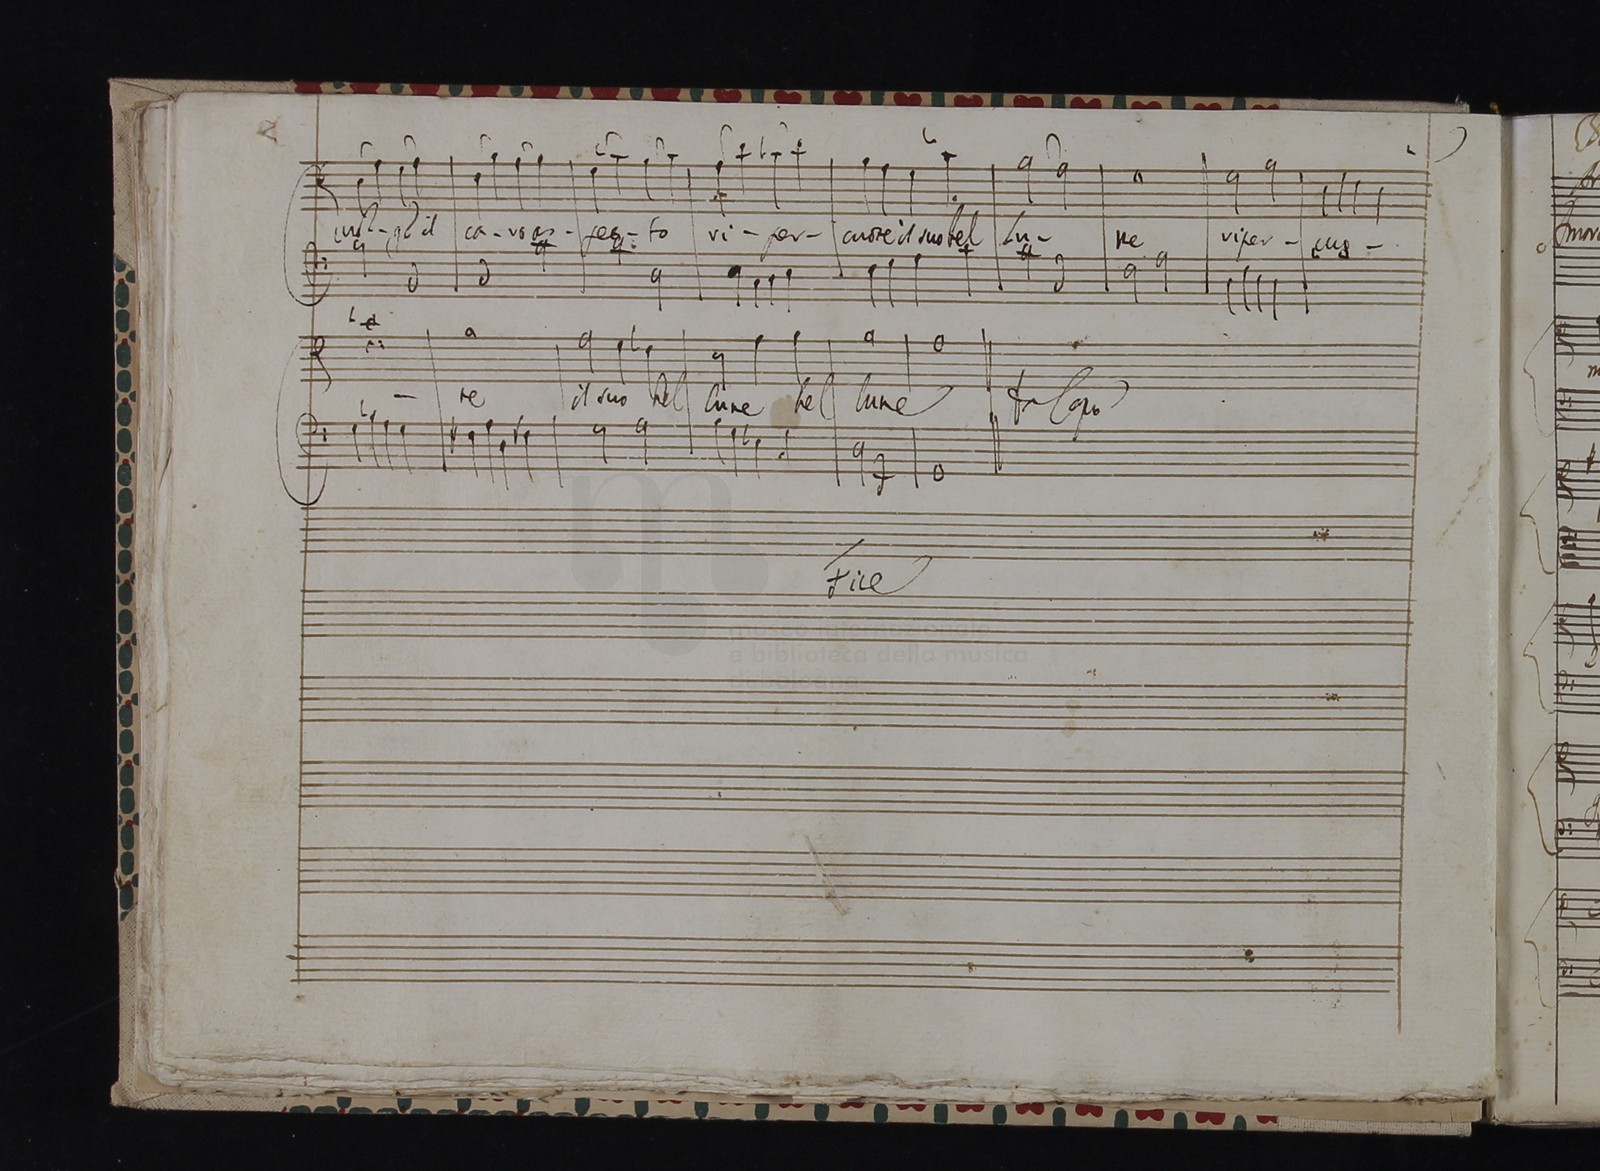 ca - ro as - pet - to vi - per - cuote il suo bel lu - me viper - cuo -
- te il suo bel lume bel lume Da Capo
Fine
museo internazionale
e biblioteca della musica
di bologna